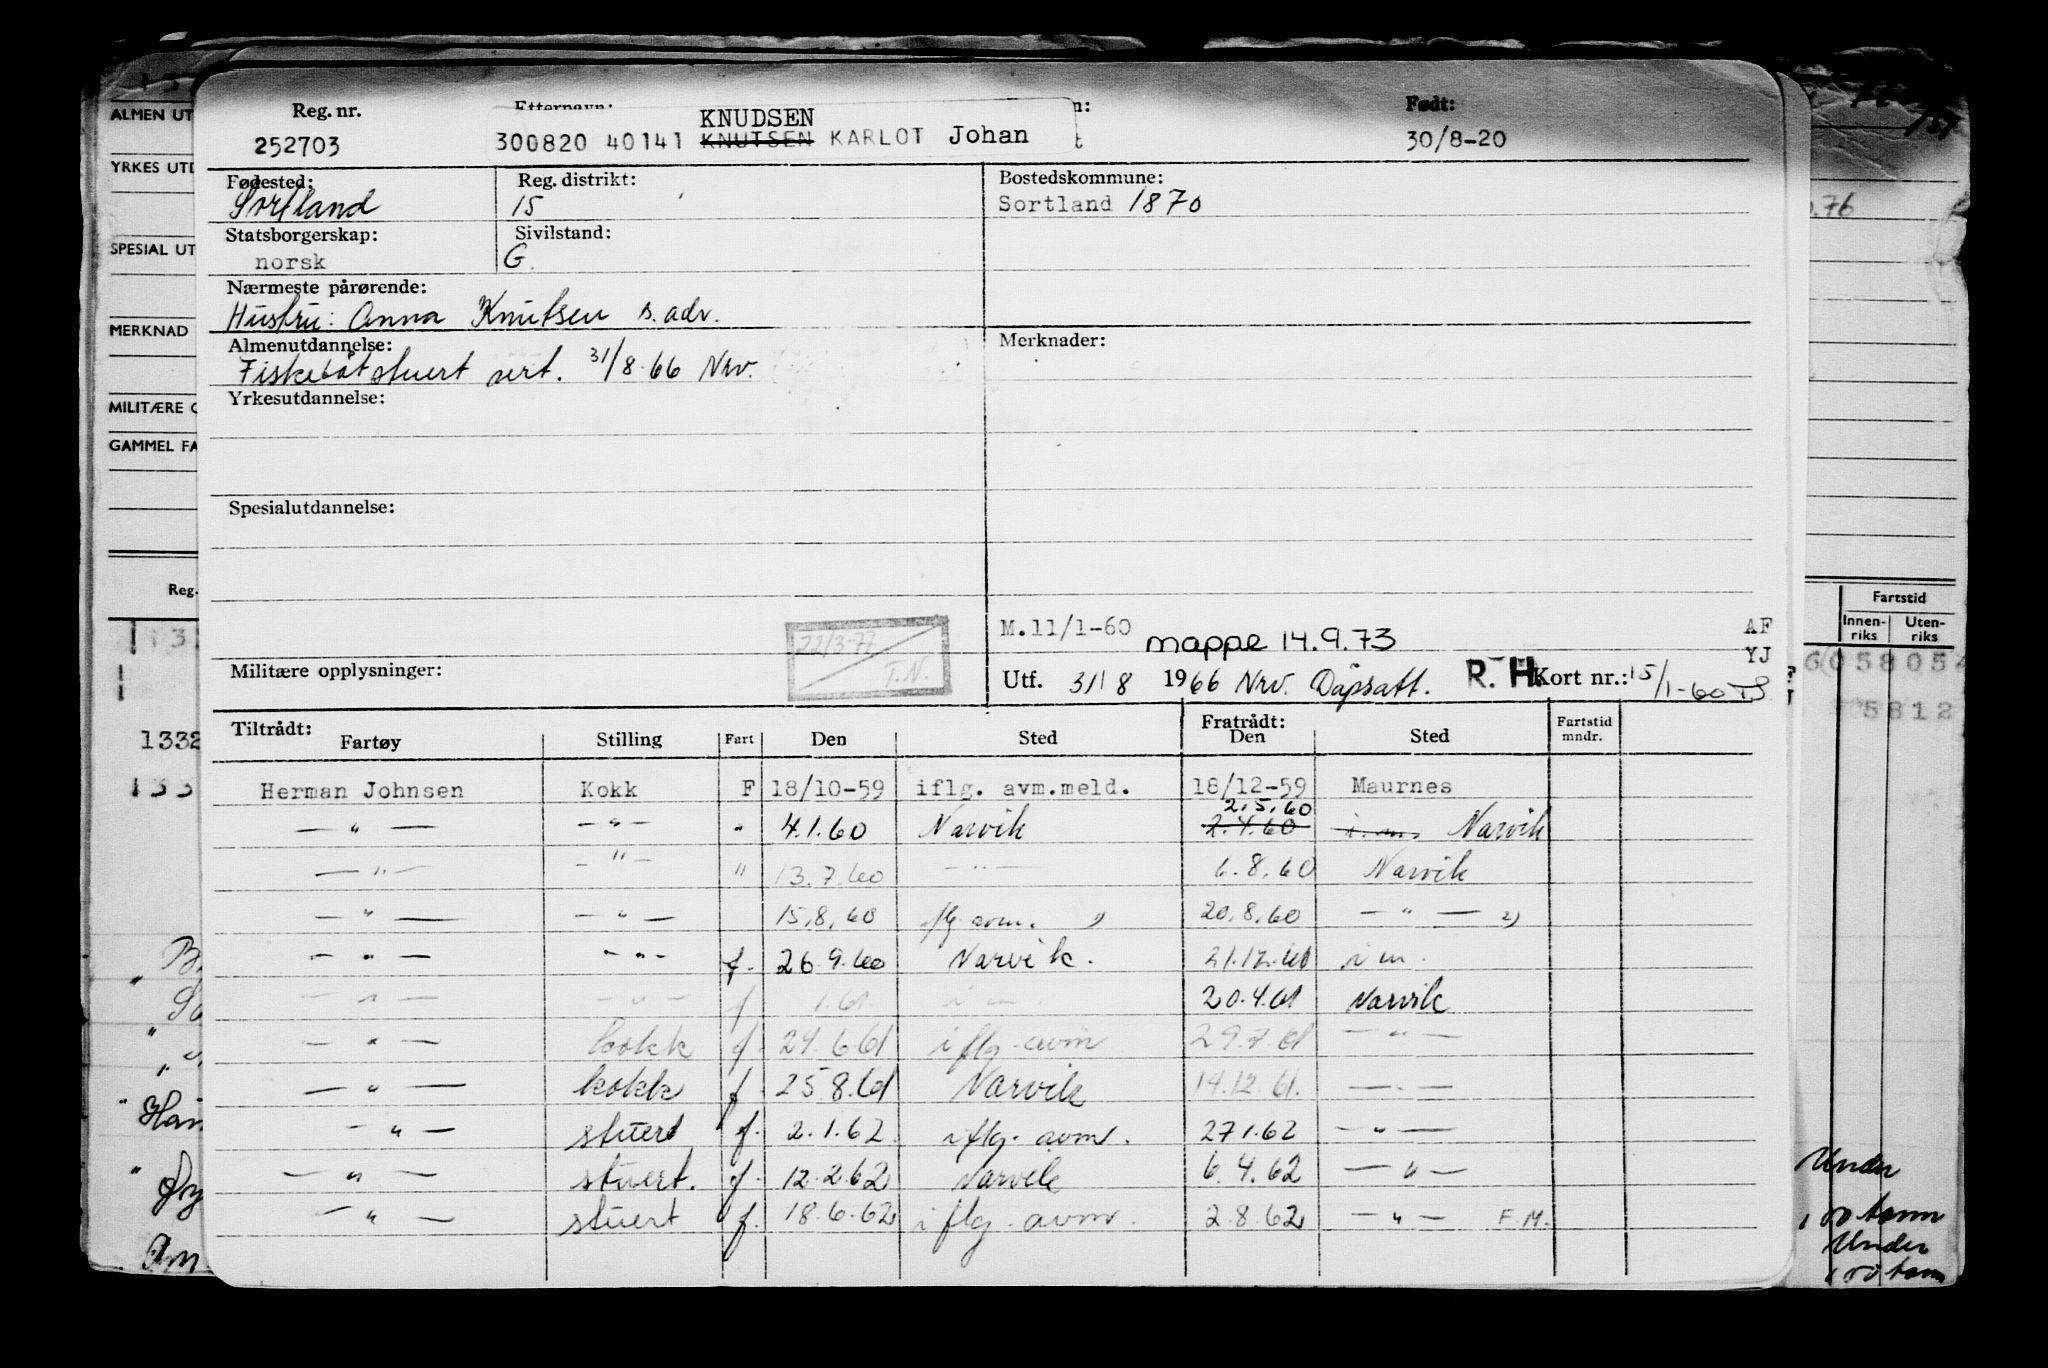 Reg. nr. Etternavn: Født:
KNUDSEN
252703 300820 40141 KNUTSEN KARLOT Johan t 30/8-20
Fødested: Reg. distrikt: Bostedskommune:
Sortland 15 Sortland 1870
Statsborgerskap: Sivilstand:
norsk G.
Nærmeste pårørende:
Hustru: Anna Knutsen s. adr.
Almenutdannelse: Merknader:
Fiskebåtstuert sert. 31/8-66 Nrv.
Yrkesutdannelse:
Spesialutdannelse:
22/3-77
T.N.
M.11/1-60 mappe 14.9.73 AF
YJ
Militære opplysninger: Utf. 31/8 1966 Nrv. Dåpsatt. R. H. Kort nr.: 15/1-60 TS
Tiltrådt: Fratrådt: Fartstid
Fartøy Stilling Fart Den Sted Den Sted mndr.
Herman Johnsen Kokk F 18/10-59 iflg. avm.meld. 18/12-59 Maurnes
2.5.60
— " — — " — " 4.1.60 Narvik 2.4.60 i.m. Narvik
— " — — " — " 13.7.60 — " — 6.8.60 Narvik
— " — — " — 15.8.60 iflg avm. 20.8.60 — " —
— " — — " — f. 26.9.60 Narvik. 21.12.60 i m.
— " — — " — f 1.61. i m. 20.4.61 Narvik
— " — kokk f. 24.6.61 iflg. avm 29.7.61 — " —
— " — kokk f. 25.8.61 Narvik 14.12.61. — " —
— " — stuert f. 2.1.62. iflg. avm. 27.1.62 — " —
— " — stuert. f. 12.2.62 Narvik 6.4.62 — " —
— " — stuert f. 18.6.62 iflg. avm. 2.8.62 — " — F.M.
ALMEN UT
YRKES UTD
SPESIAL UT
MERKNAD
MILITÆRE O
GAMMEL FA
Reg.
1332
133
Fartstid
Innen- Uten-
riks riks
58054
5812
Under
100 tonn
Under
100 tonn